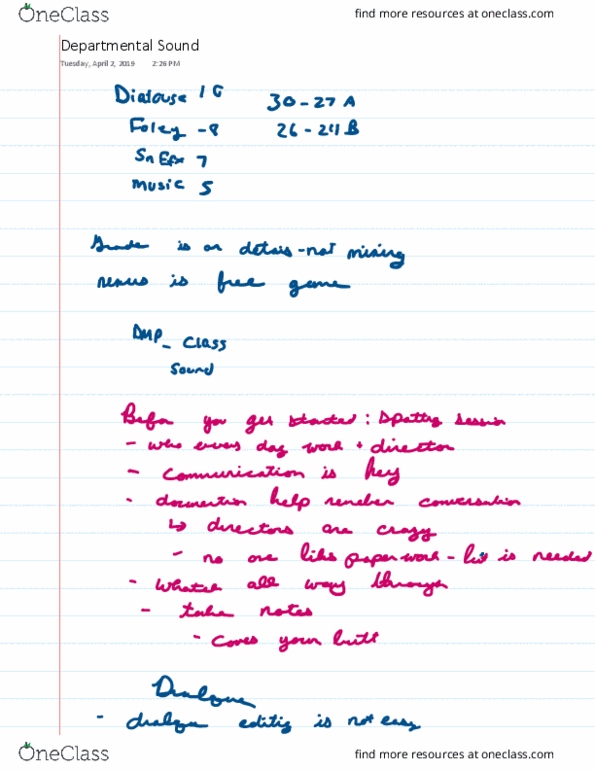 OneClass
find more resources at oneclass.com
Departmental Sound
Tuesday, April 2, 2019 2:26 PM
Dialouge 10 30-27 A
Foley -8 26-24 B
Sn Efx 7
Music 5
Grade is on details - not mixing
nexus is free game
DMP_ Class
Sound
Before you get started: Spotting session
- who every day work + director
- Communication is key
- documention help remember conversation
↳ directors are crazy
- no one likes paperwork - but is needed
- Whatch all way through
- take notes
- Coves your butt
Dialogue
- dialogue editing is not easy
OneClass
find more resources at oneclass.com